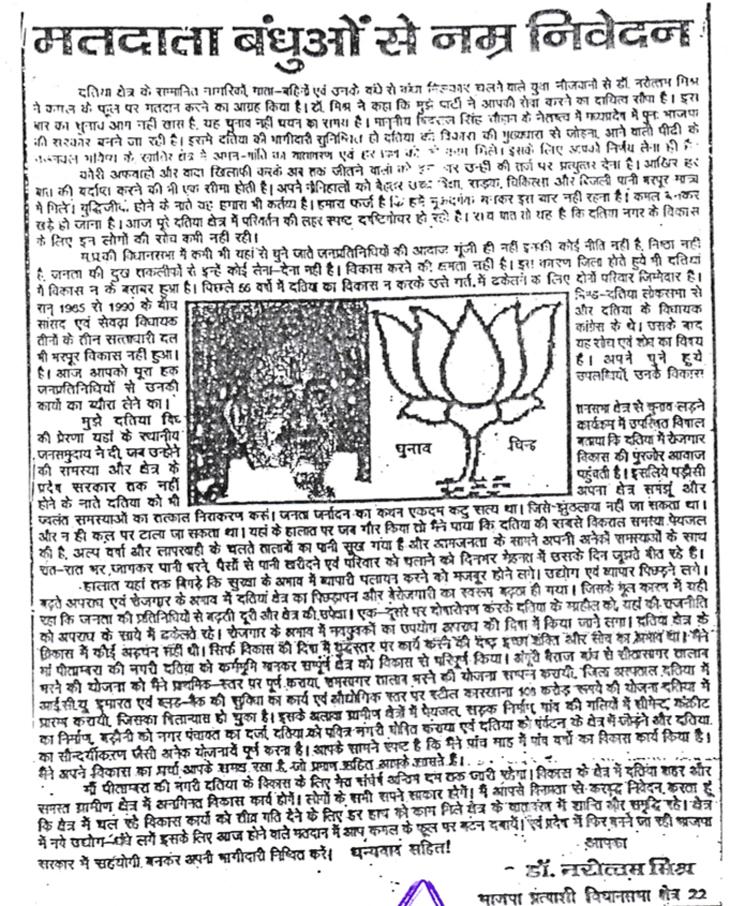 मतदाता बंधुओं से नम्र निवेदन
दतिया क्षेत्र के सम्मानित नागरिकों, माता-बहिनों एवं उनके कंधे से कंधा मिलाकर चलने वाले युवा नौजवानों से डॉ. नरोत्तम मिश्र
ने कमल के फूल पर मतदान करने का आग्रह किया है। डॉ. मिश्र ने कहा कि मुझे पार्टी ने आपकी सेवा करने का दायित्व सौंपा है। इस
बार का चुनाव आम नहीं खास है, यह चुनाव नहीं चयन का समय है। माननीय शिवराज सिंह चौहान के नेतृत्व में मध्यप्रदेश में पुनः भाजपा
की सरकार बनने जा रही है। इसमे दतिया की भागीदारी सुनिश्चित हो दतिया को विकास की मुख्यधारा से जोड़ना, आने वाली पीढी के
भविष्य के खातिर क्षेत्र में अमन-शांति का वातावरण एवं हर को काम मिले। इसके लिए आपको निर्णय लेना ही है।
कोरी अफवाहों और वादा खिलाफी करके अब तक जीतने वालों को इस बार उन्हीं की तर्ज पर प्रत्युत्तर देना है। आखिर हर
बात की बर्दाश्त करने की भी एक सीमा होती है। अपने नौनिहालों को बेहतर उच्च शिक्षा, सड़क, चिकित्सा और बिजली पानी भरपूर मात्रा
में मिले। बुद्धिजीवी होने के नाते यह हमारा भी कर्तव्य है। हमारा फर्ज है कि हमें मूकदर्शक बनकर इस बार नहीं रहना है। कमल बनकर
खड़े हो जाना है। आज पूरे दतिया क्षेत्र में परिवर्तन की लहर स्पष्ट दृष्टिगोचर हो रही है। सच बात तो यह है कि दतिया नगर के विकास
के लिए इन लोगों की सोच कभी नहीं रही।
म.प्र.की विधानसभा में कभी भी यहां से चुने जाते जनप्रतिनिधियों की आवाज गूंजी ही नहीं इनकी कोई नीति नहीं है, निष्ठा नहीं
है, जनता की दुख तकलीफों से इन्हें कोई लेना-देना नहीं है। विकास करने की क्षमता नहीं है। इस कारण जिला होते हुये भी दतिया
में विकास न के बराबर हुआ है। पिछले 56 वर्षो में दतिया का विकास न करके उसे गर्त में ढकेलने के लिए दोनों परिवार जिम्मेदार है।
सन् 1985 से 1990 के बीच भिण्ड-दतिया लोकसभा से
सांसद एवं सेवढ़ा विधायक और दतिया के विधायक
तीनों के तीन सत्ताधारी दल कांग्रेस के थे। उसके बाद
भी भरपूर विकास नहीं हुआ। यह सोच एवं शोध का विषय
है। आज आपको पूरा हक है। अपने चुने हुये
जनप्रतिनिधियों से उनकी उपलब्धियों, उनके विकास
कार्यो का ब्यौरा लेने का।
मुझे दतिया विधानसभा क्षेत्र से चुनाव लड़ने
की प्रेरणा यहां के स्थानीय कार्यक्रम में उपस्थित विशाल
जनसमुदाय ने दी, जब उन्होंने बताया कि दतिया में रोजगार
की समस्या और क्षेत्र के विकास की पुरजोर आवाज
प्रदेश सरकार तक नहीं पहुंचती है। इसलिये पड़ौसी
होने के नाते दतिया को भी अपना क्षेत्र समझूं और
चुनाव चिन्ह
ज्वलंत समस्याओं का तत्काल निराकरण करूं। जनता जर्नादन का कथन एकदम कटु सत्य था। जिसे झुठलाया नहीं जा सकता था।
और न ही कल पर टाला जा सकता था। यहां के हालात पर जब गौर किया तो मैंने पाया कि दतिया की सबसे विकराल समस्या पेयजल
की है, अल्प वर्षा और लापरवाही के चलते तालाबों का पानी सूख गया है और आमजनता के सामने अपनी अनेकों समस्याओं के साथ
रात-रात भर जागकर पानी भरने, पैसों से पानी खरीदने एवं परिवार को चलाने को दिनभर मेहनत में उसके दिन जूझते बीत रहे है।
हालात यहां तक बिगड़े कि सुरक्षा के अभाव में व्यापारी पलायन करने को मजबूर होने लगे। उद्योग एवं व्यापार पिछड़ने लगे।
बढ़ते अपराध एवं रोजगार के अभाव में दतिया क्षेत्र का पिछड़ापन और बेरोजगारी का स्वरूप बढ़ता ही गया। जिसके मूल कारण में यही
रहा कि जनता की प्रतिनिधियों से बढ़ती दूरी और क्षेत्र की उपेक्षा। एक-दूसरे पर दोषारोपण करके दतिया के माहौल को, यहां की राजनीति
को अपराध के साये में ढकेलते रहे। रोजगार के अभाव में नवयुवकों का उपयोग अपराध की दिशा में किया जाने लगा। दतिया क्षेत्र के
विकास में कोई अड़चन नहीं थी। सिर्फ विकास की दिशा में युद्धस्तर पर कार्य करने की इच्छा शक्ति और सोच का अभाव था। मैंने
माँ पीताम्बरा की नगरी दतिया को कर्मभूमि बनकर सम्पूर्ण क्षेत्र को विकास से परिपूर्ण किया। अंगूरी बैराज बांध से सीतासागर तालाब
भरने की योजना को मैंने प्राथमिक-स्तर पर पूर्ण कराया, तालाब भरने की योजना सम्पन्न करायी, जिला अस्पताल दतिया में
आई.सी.यू. इमारत एवं ब्लड-बैंक की सुविधा का कार्य एवं औद्योगिक स्तर पर स्टील कारखाना करोड़ रूपये की योजना दतिया में
प्रारम्भ करायी, जिसका शिलान्यास हो चुका है। इसके अलावा ग्रामीण क्षेत्रों में पेयजल, सड़क निर्माण, गांव की गलियों में सीमेन्ट कांक्रीट
का निर्माण, बड़ौनी को नगर पंचायत का दर्जा, दतिया को पवित्र नगरी घोषित कराया एवं दतिया को पर्यटन के क्षेत्र में जोड़ने और दतिया
का सौन्दर्यीकरण जैसी अनेक योजनायें पूर्ण करना है। आपके सामने स्पष्ट है कि मैंने पांच माह में पांच वर्षो का विकास कार्य किया है।
मैंने अपने विकास का पर्चा आपके समक्ष रखा है, जो प्रमाण सहित आपके सामने है।
माँ पीताम्बरा की नगरी दतिया के विकास के लिए मेरा संघर्ष अन्तिम दम तक जारी रहेगा। विकास के क्षेत्र में दतिया शहर और
समस्त ग्रामीण क्षेत्र में अनगिनत विकास कार्य होगें। लोगों के सभी सपने साकार होगें। मैं आपसे विनम्रता से करबद्ध निवेदन करता हूं
कि क्षेत्र में चल रहे विकास कार्यो को तीव्र गति देने के लिए हर हाथ को काम मिले क्षेत्र के वातावरण में शान्ति और समृद्धि रहे। क्षेत्र
में नये उद्योग-धंधे लगें इसके लिए आज होने वाले मतदान में आप कमल के फूल पर बटन दबायें। एवं प्रदेश में फिर बनने जा रही भाजपा
सरकार में सहयोगी बनकर अपनी भागीदारी निश्चित करें। धन्यवाद सहित!
आपका
- डॉ. नरोत्तम मिश्र
भाजपा प्रत्याशी विधानसभा क्षेत्र 22